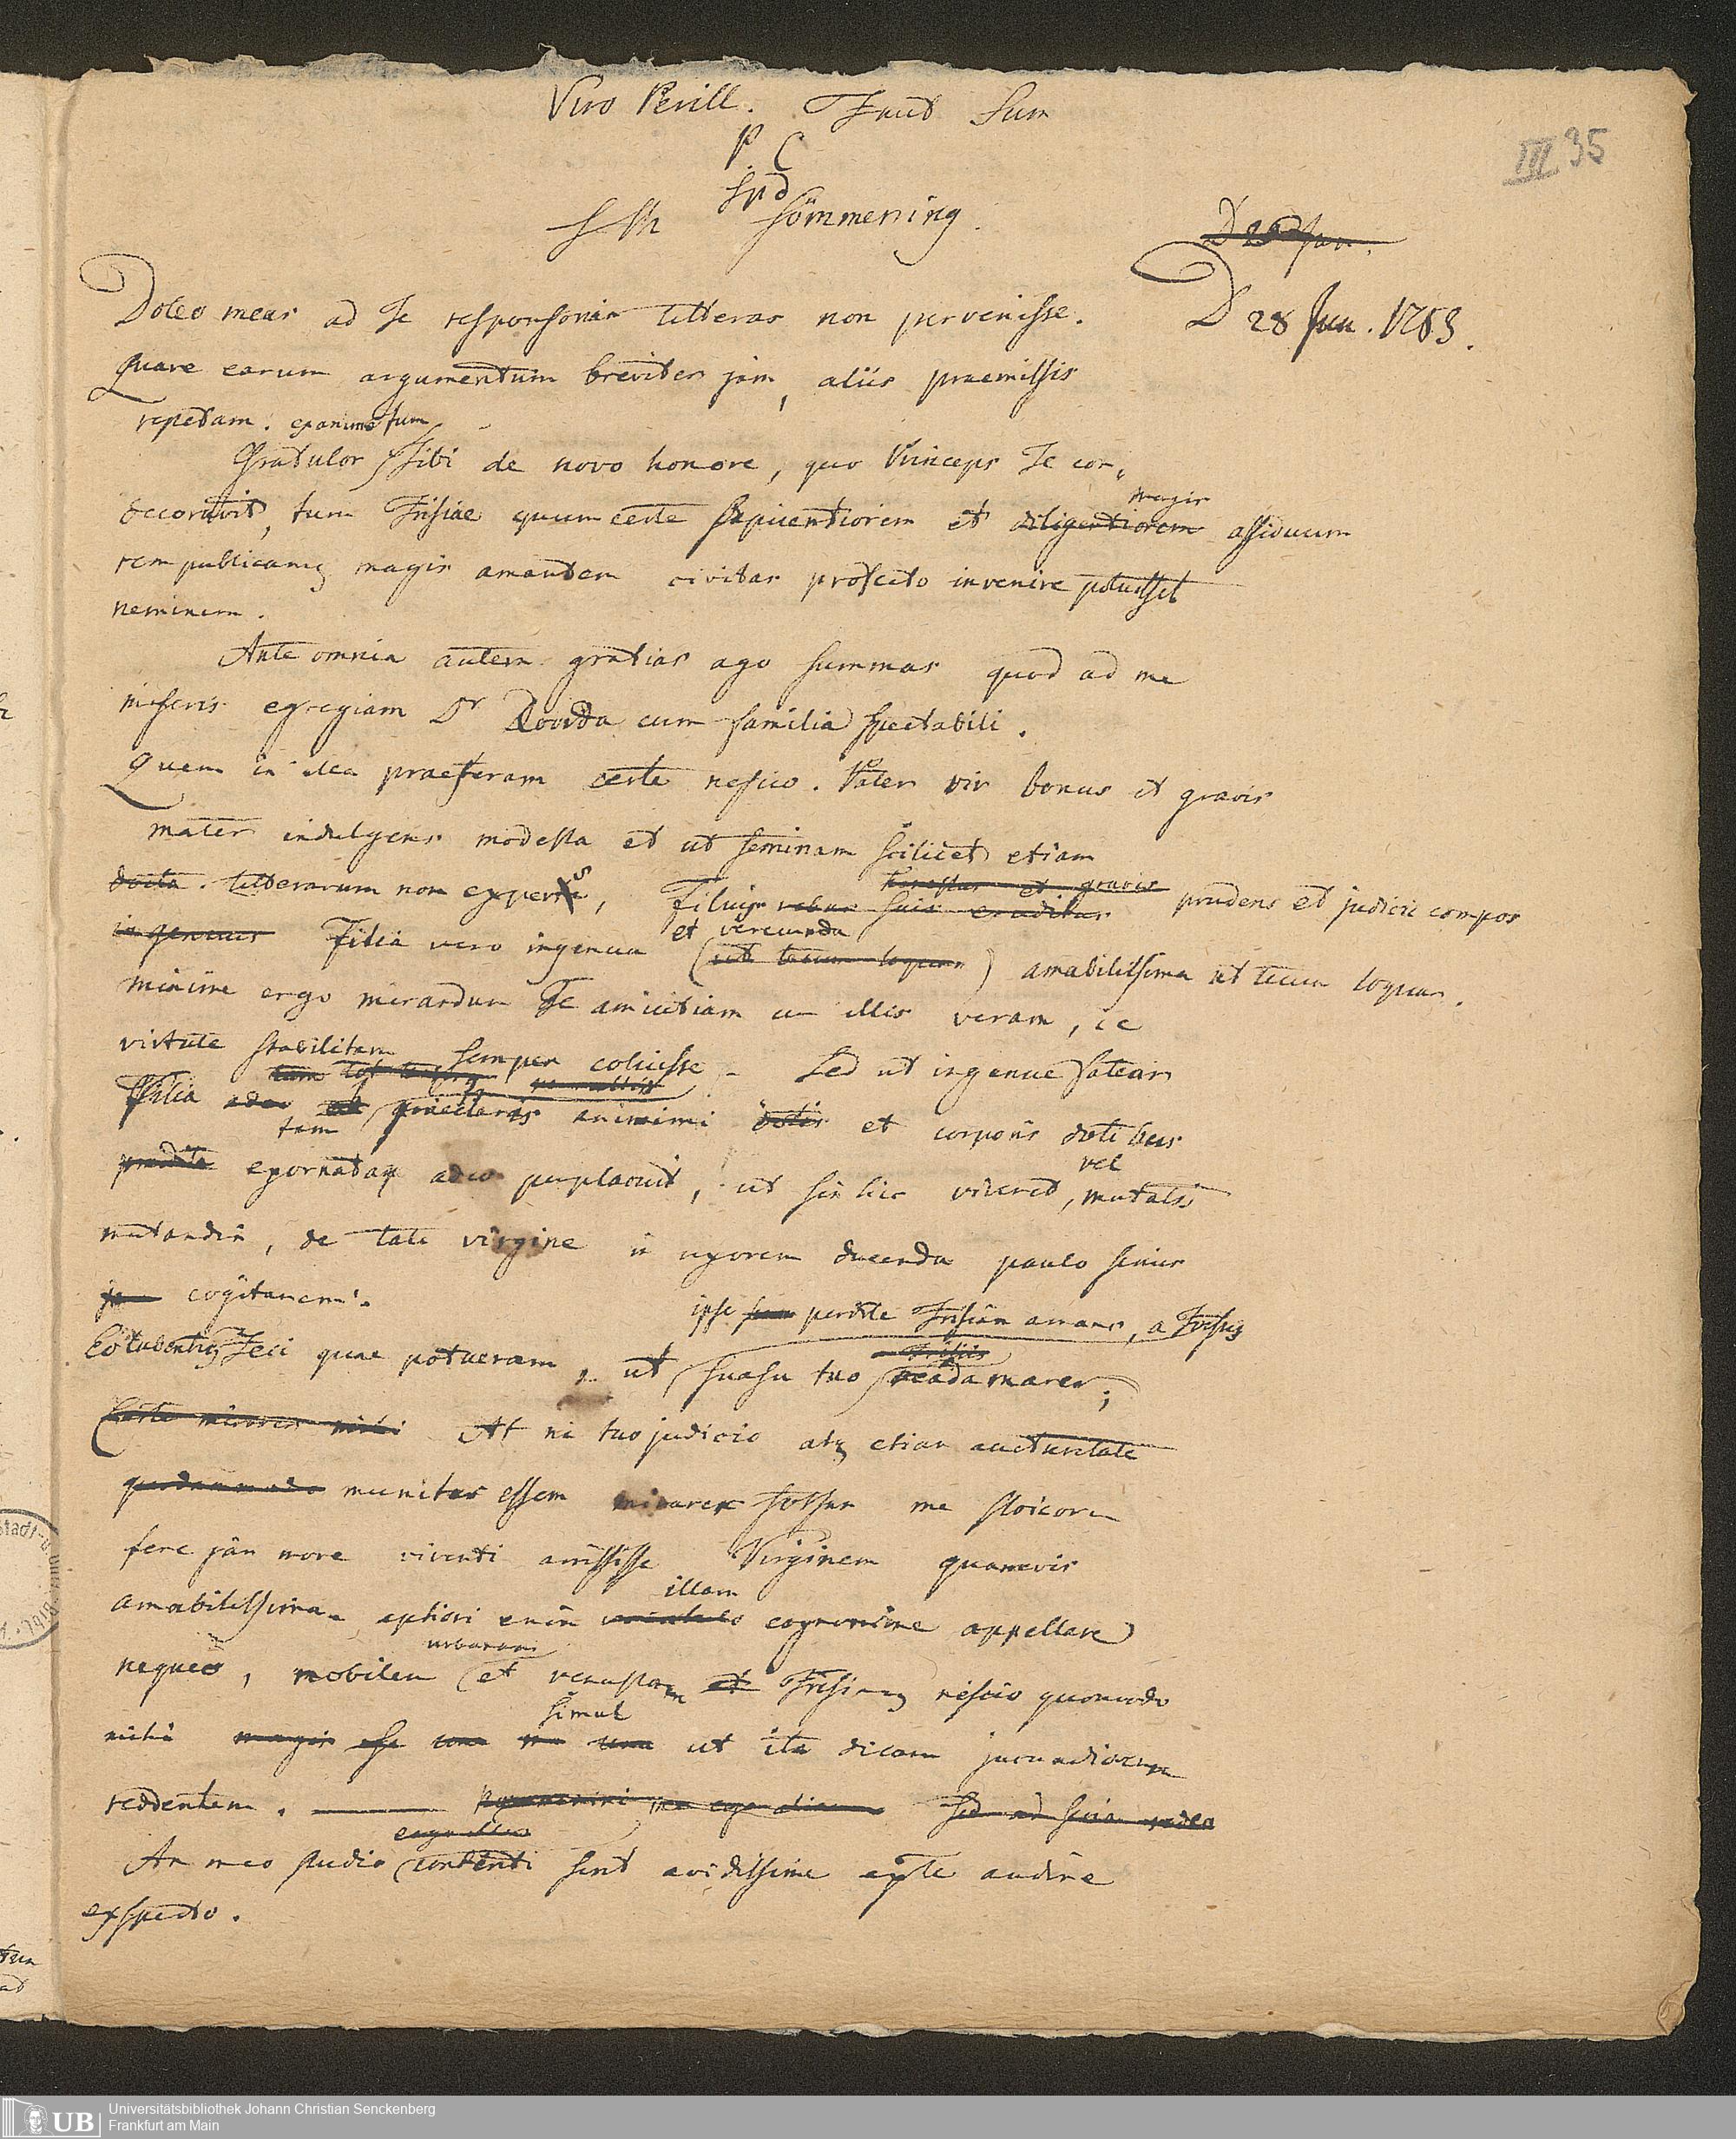 Viro Perill.
P C
SpD
S Th Sömmerring.
III 35
D 28 Jun.
D 28 Jun. 1783.
Doleo meas ad Te responsorias litteras non pervenisse.
Quare earum argumentum breviter jam, aliis praemissis
repetam. ex animo tum
Gratulor Tibi de novo honore, quo Princeps Te con-
decoravit, tum Frisiae quum certe sapientiorem et diligentiorem magis assiduum
rempublicamq magis amantem civitas profecto invenire potuisset
neminem.
Ante omnia autem gratias ago summas quod ad me
miseris egregiam Dr cum familia spectabili.
Quem in illa praeferam certe nescio. Pater vir bonus et gravis
mater indulgens modesta et ut feminam scilicet etiam
docta. litterarum non expers, honestus et gravis
Filius rebus suis eruditus prudens et judicii compos
Filia vero ingenua et verecunda (ut tecum loquar) amabilissima ut tecum loquar.
minime ergo mirandum Te amicitiam cum illis veram, i e
virtute stabilitam semper coluisse - Sed ut ingenue fatear
Filia adeo tam praeclaris animi dotis et corporis dotibus
praedita exornata adeo perplacuit, ut si hic viveret, vel mutatis
mutandis, de tali virgine in uxorem ducenda paulo serius
cogitarem.
ipse perdite Frisiam amans, a Frisiis
feci quae potueram, ut suasu tuo redamarer;
At ni tuo judicio atq etiam auctoritate
quodammodo munitus essem mirarer me stoicorum
fere jam more viventi amisisse Virginem quamvis
amabilissimam aptiori enim illam cognomine appellare
nequeo, nobilem (et urbanam venustam et nescio quomodo
mihi magis simul ut ita dicam jucundiorem
reddentem.
An meo studio contenti sint avidissime ex te audire
exspecto.
Universitätsbibliothek Johann Christian Senckenberg
Frankfurt am Main
UB